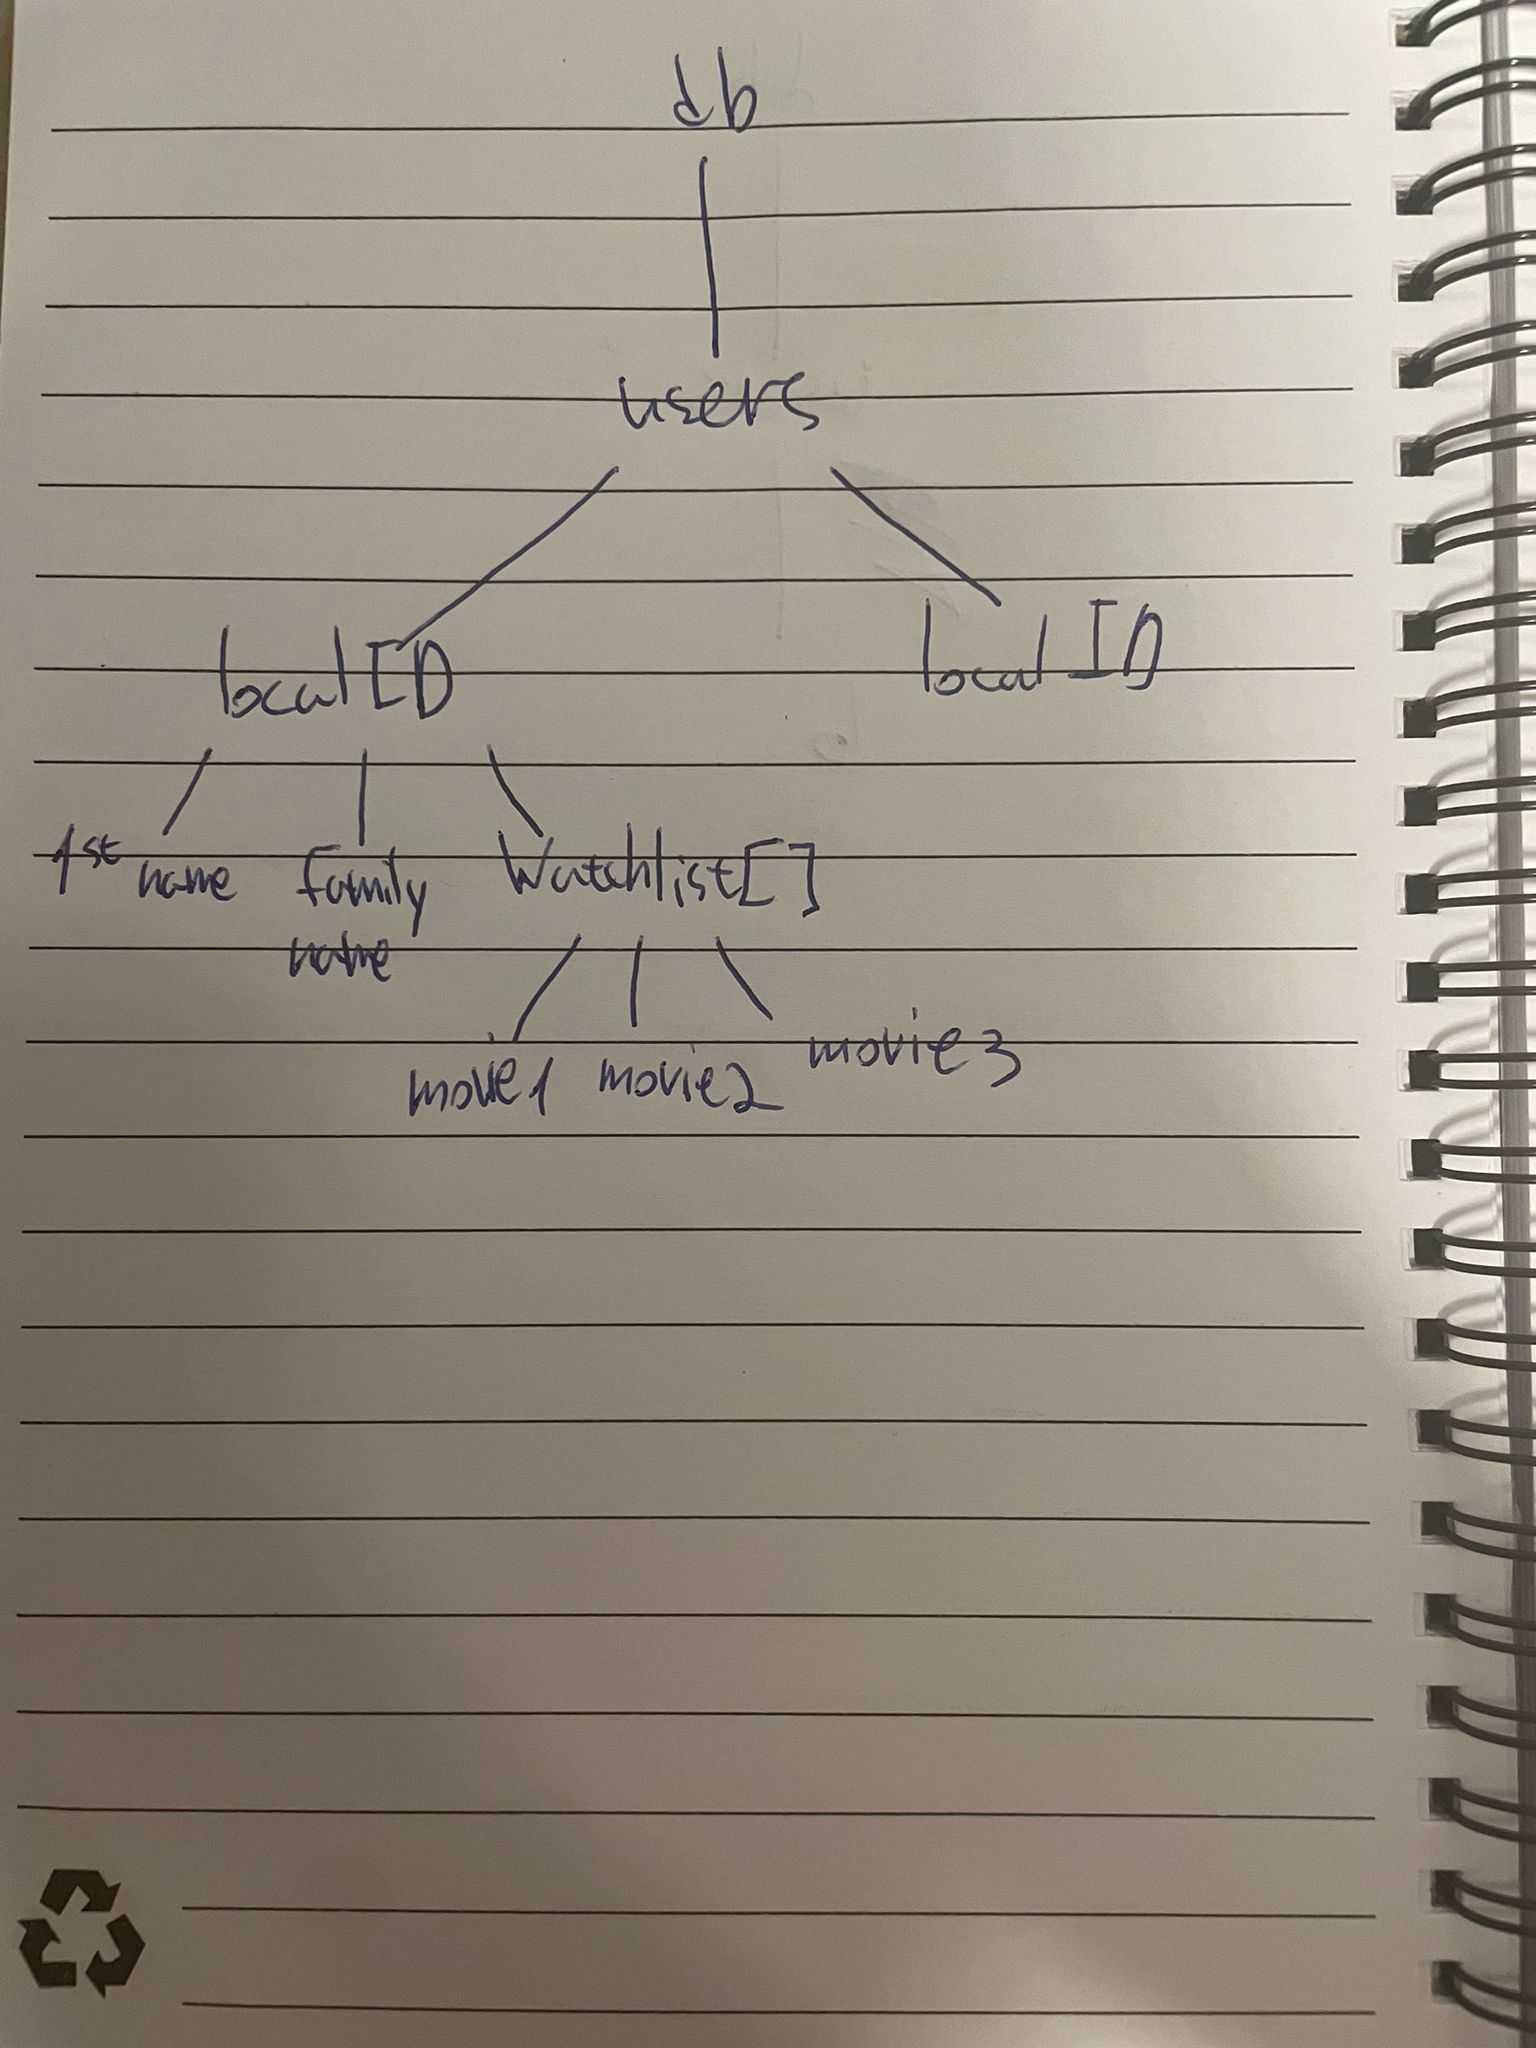 db
users
localID
local ID
1st name
family
name
Watchlist[]
movie1
movie2
movie3